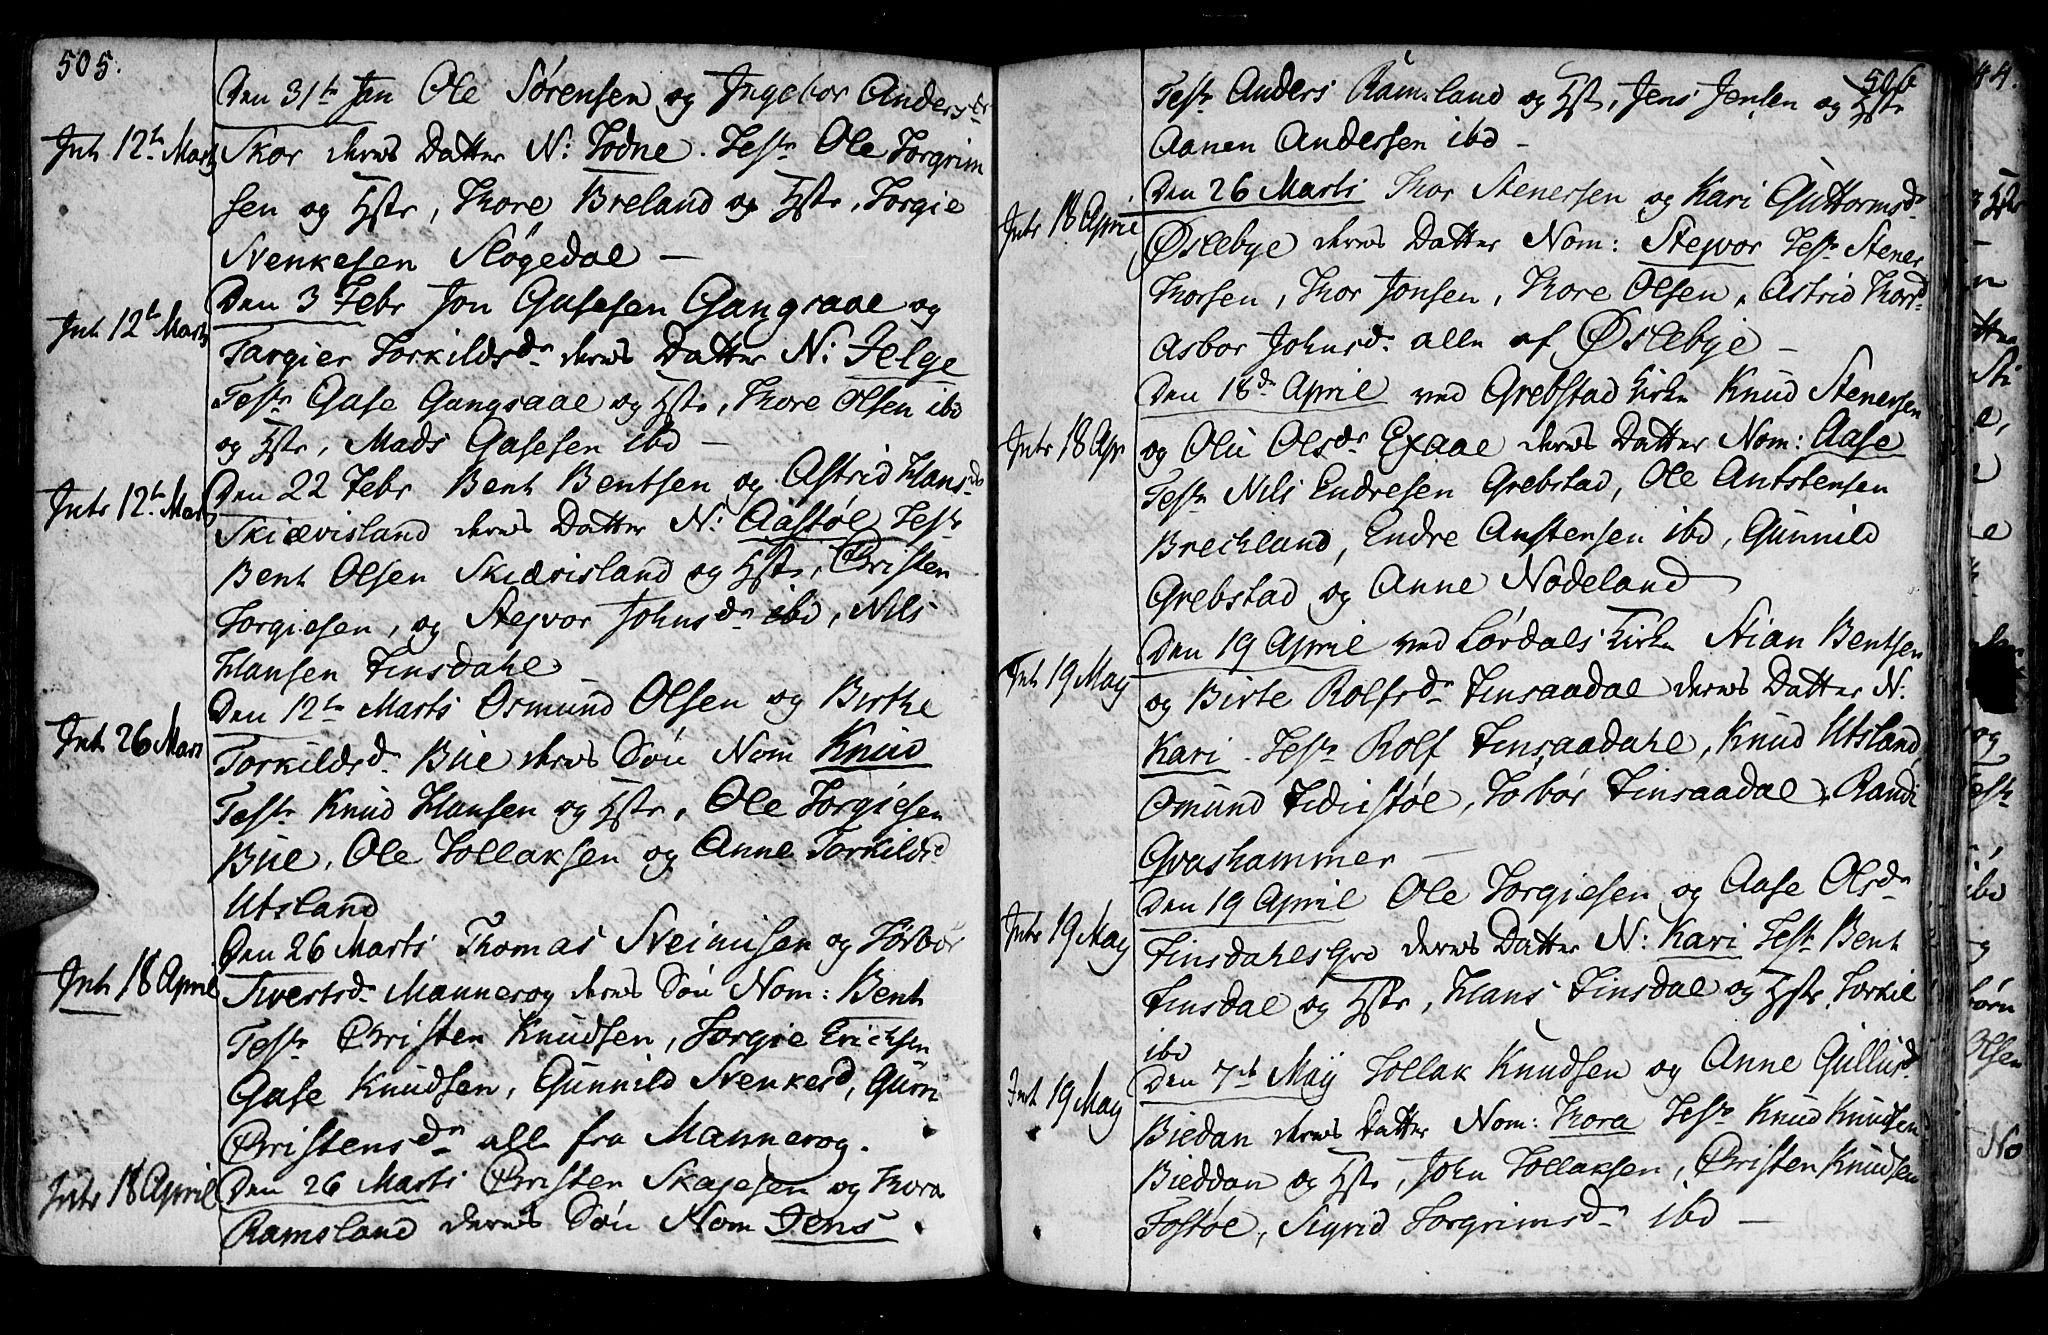 505.
Den 31te Jan Ole Sørensen og Ingebor Andersdr
Int 12te Marti Skor deres Datter N: Todne. Testr Ole Torgrim
sen og Hstr, Thore Breland og Hstr, Torgie
Svenkesen Sløgedal —
Den 3 Febr Jon Gasesen Gangsaae og
Int 12te Marti Targier Torkildsdr deres Datter N: Jelge
Testr Gase Gangsaae og Hstr, Thore Olsen ibd
og Hstr, Mads Gasesen ibd —
Den 22 Febr Bent Bentsen og Astrid Hansdr
Intr 12te Marti Skiævisland deres Datter N: Aastøl Testr
Bent Olsen Skiævisland og Hstr, Christen
Torgiesen, og Stejvor Johnsdr ibd, Nils
Hansen Finsdahl
Den 12te Marti Osmund Olsen og Birthe
Int 26 Mari Torkildsdr Bue deres Søn Nom Knud
Testr Knud Hansen og Hstr, Ole Torgiesen
Bue, Ole Tollaksen og Anne Torkildsd
Utsland
Den 26 Marti Thomas Sveinusen og Torbor
Int 18 April Sivertsdr Mannerog deres Søn Nom: Bent
Testr Christen Knudsen, Torgie Erichsen
Gase Knudsen, Gunnild Svenkesd, Gurri
Christensdr alle fra Mannerog.
Intr 18 April Den 26 Marti Christen Skajesen og Thora
Ramsland deres Søn Nom Jens
506
Testr Anders Ramsland og Hstr, Jens Jensen og Hstr
Aanen Andersen ibd —
Den 26 Marti Thor Stenersen og Kari Guttormsdr
Intr 18 April Øslebye deres Datter Nom: Stejvor Testr Stener
Thorsen, Thor Jonsen, Thore Olsen, Astrid Thorsd
Asbor Johnsdr alle af Øslebye —
Den 18de April ved Grebstad Kirke Knud Stenersen
Intr 18 Apr og Olu Olsdr Exaae deres Datter Nom: Aase
Testr Nils Endresen Grebstad, Ole Antstensen
Breckland, Endre Anstensen ibd, Gunnild
Grebstad og Anne Nodeland
Den 19 April ved Lørdals Kirke Stian Bentsen
Int 19 May og Birte Rolfsdr Finsaadal deres Datter N:
Kari. Testr Rolf Finsaadahl, Knud Utsland
Omund Fidiestøl, Torbor Finsaadal, Randi
Qvashammer —
Den 19 April Ole Torgiesen og Aase Olsdr
Intr 19 May Finsdahls Gre deres Datter N: Kari Testr Bent
Finsdal og Hstr, Hans Finsdal og Hstr Torkil
ibd
Den 7de May Tollak Knudsen og Anne Gullusdr
Int 19 May Biedan deres Datter Nom: Thora Testr Knud Knudsen
Bieddan og Hstr, John Tollaksen, Christen Knudsen
Fostøl, Sigrid Torgrimsdr ibd —